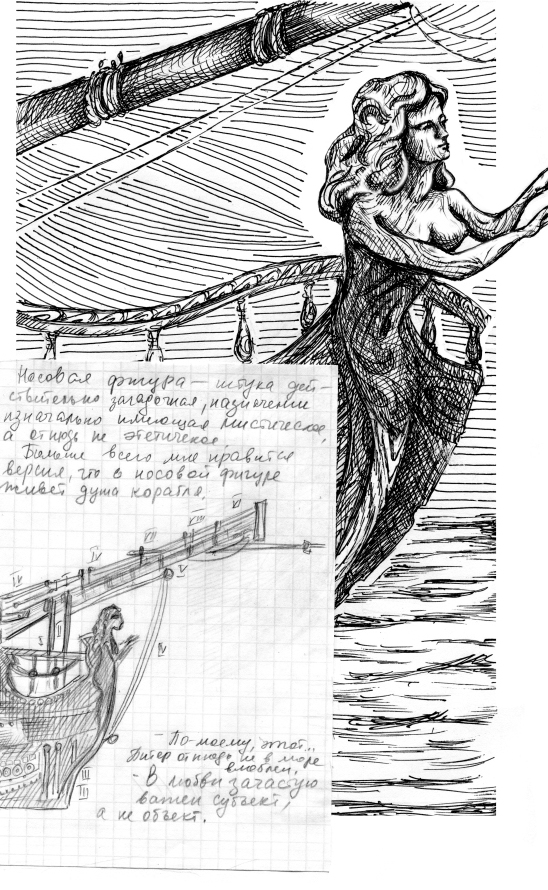 Носовая фигура — штука дей-
ствительно загадочная, назначение
изначально имеющая мистическое,
а отнюдь не эстетическое.
Больше всего мне нравится
версия, что в носовой фигуре
живёт душа корабля.
VI
VIII
VII
IV
IV
V
I
II
IV
III
III
- По-моему, этот...
Питер отнюдь не в море
влюблён.
- В любви зачастую
важен субъект,
а не объект.